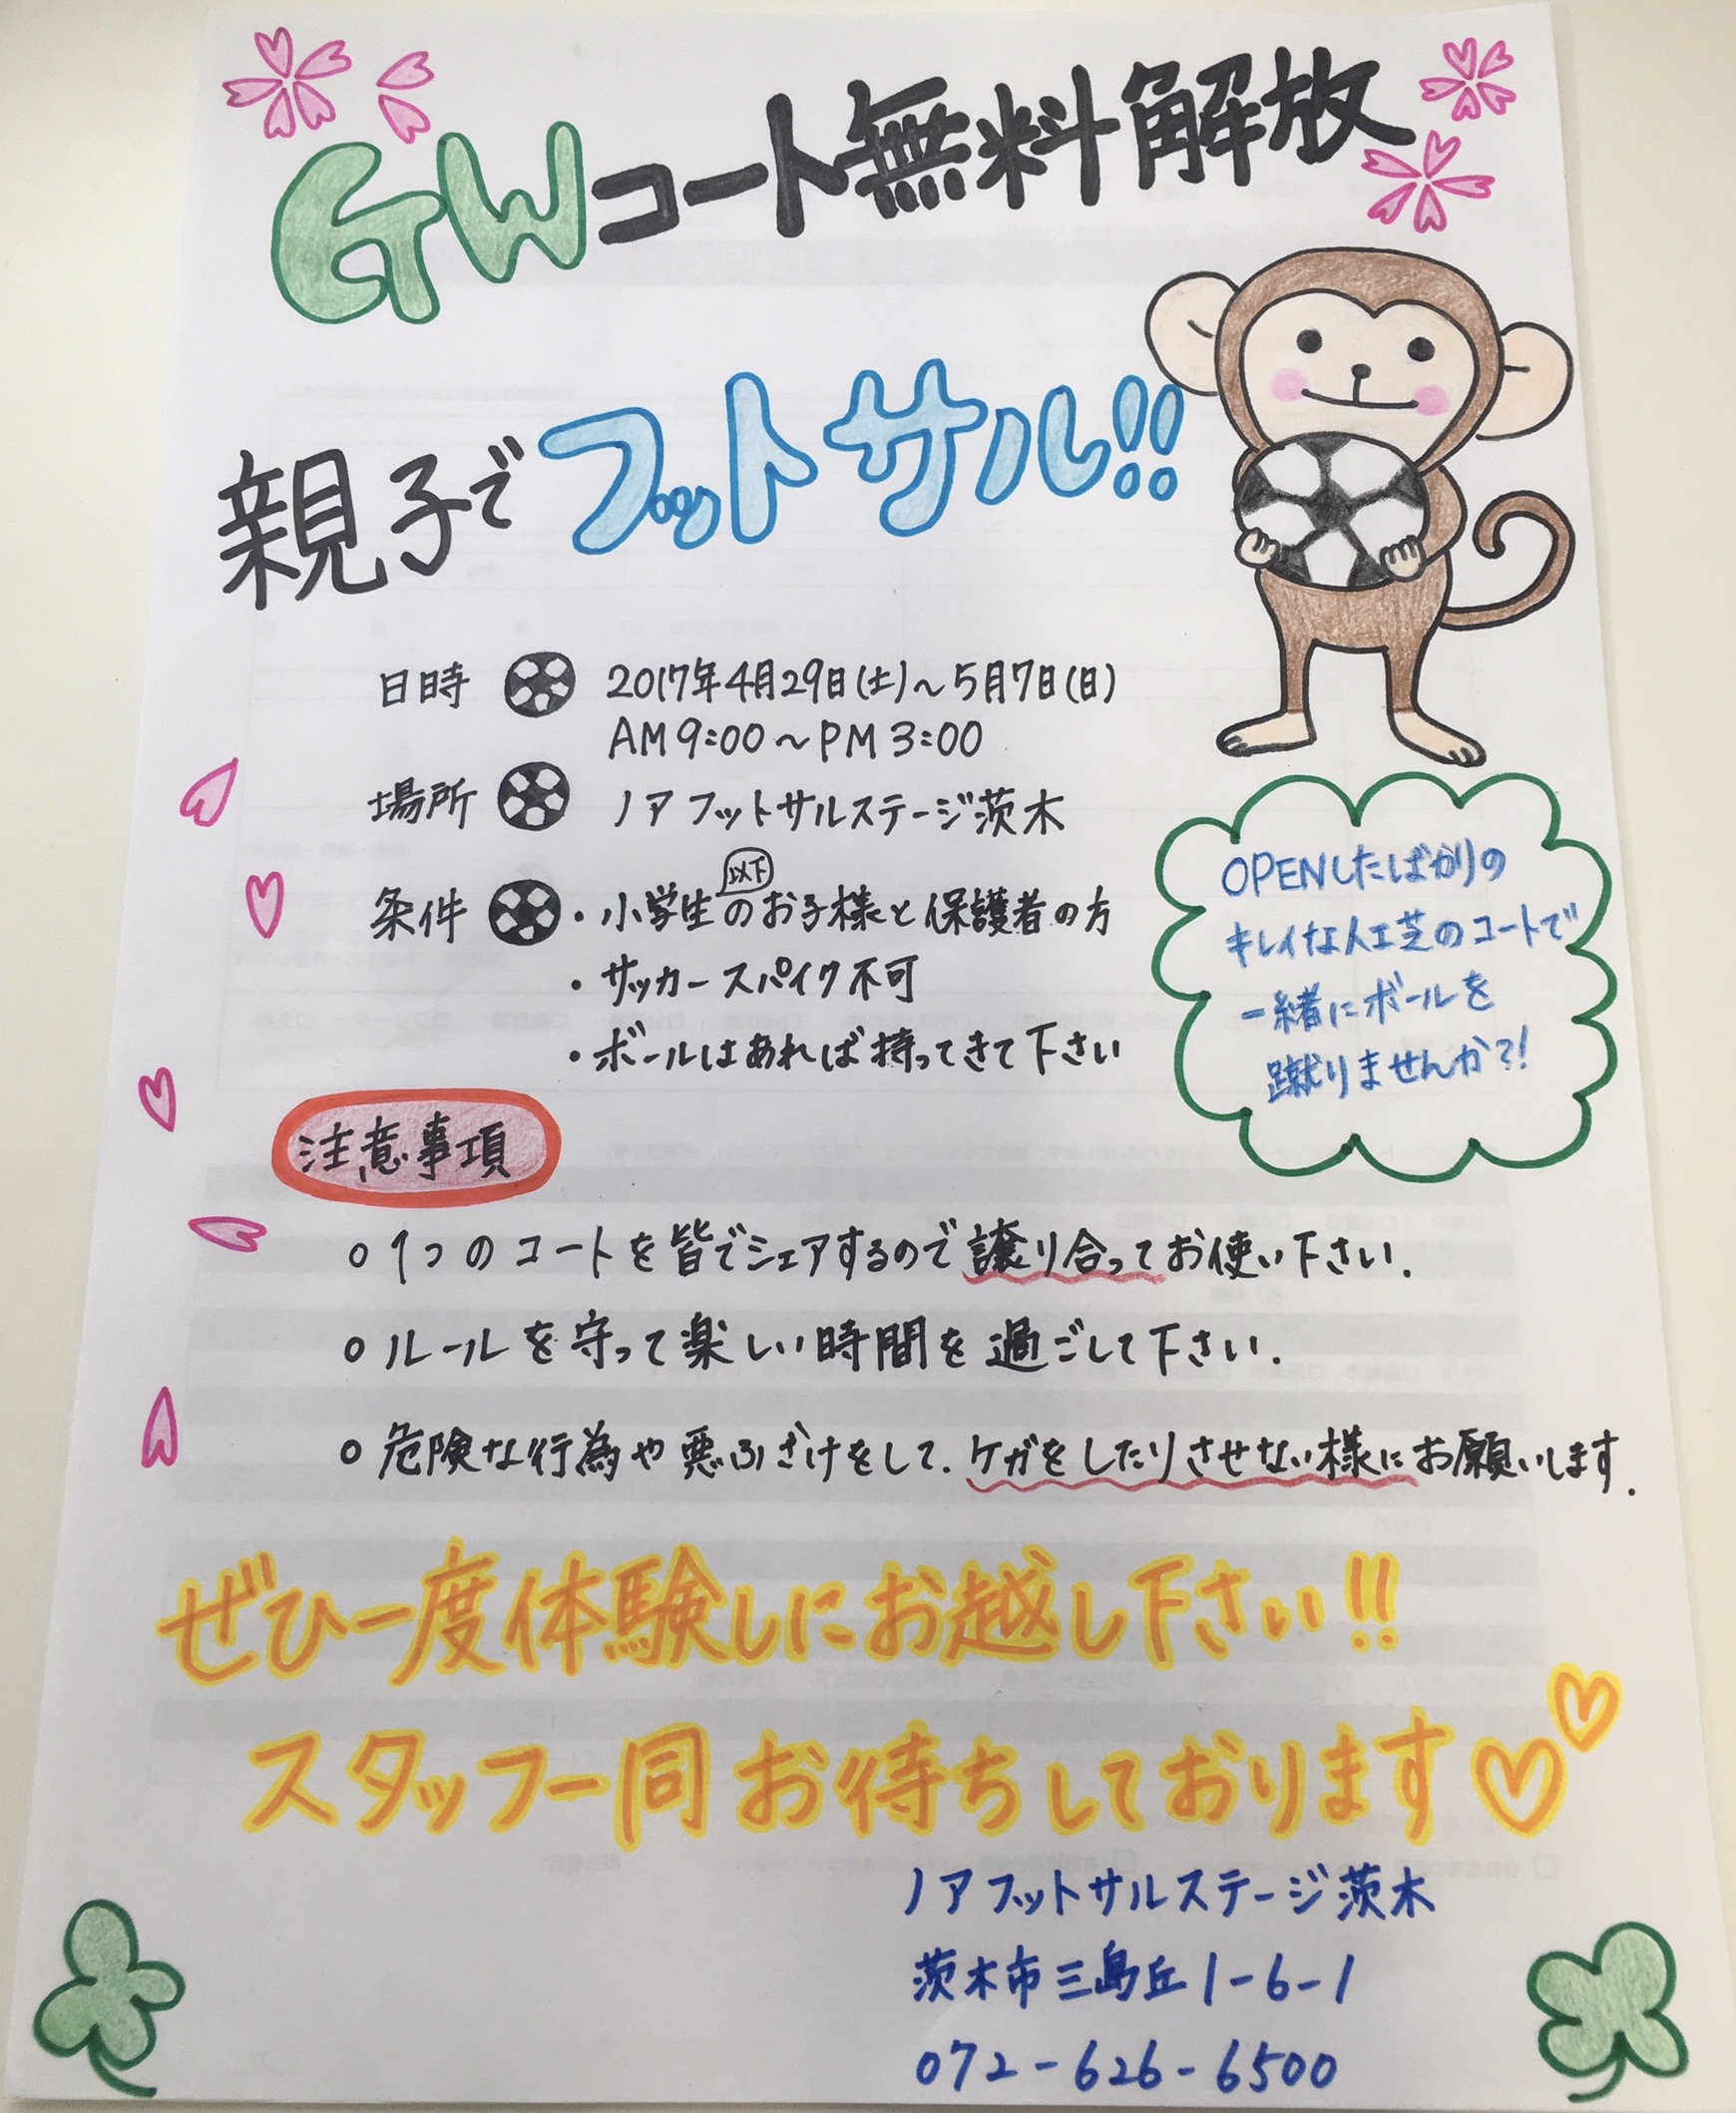 GWコート無料解放
親子でフットサル!!
日時 2017年4月29日(土)～5月7日(日)
AM9:00～PM3:00
場所 ノアフットサルステージ茨木
条件 ・小学生以下のお子様と保護者の方
・サッカースパイク不可
・ボールはあれば持ってきて下さい
OPENしたばかりの
キレイな人工芝のコートで
一緒にボールを
蹴りませんか?!
注意事項
○1つのコートを皆でシェアするので譲り合ってお使い下さい.
○ルールを守って楽しい時間を過ごして下さい.
○危険な行為や悪ふざけをして、ケガをしたりさせない様にお願いします.
ぜひ一度体験しにお越し下さい!!
スタッフ一同お待ちしております♡♡
ノアフットサルステージ茨木
茨木市三島丘1-6-1
072-626-6500